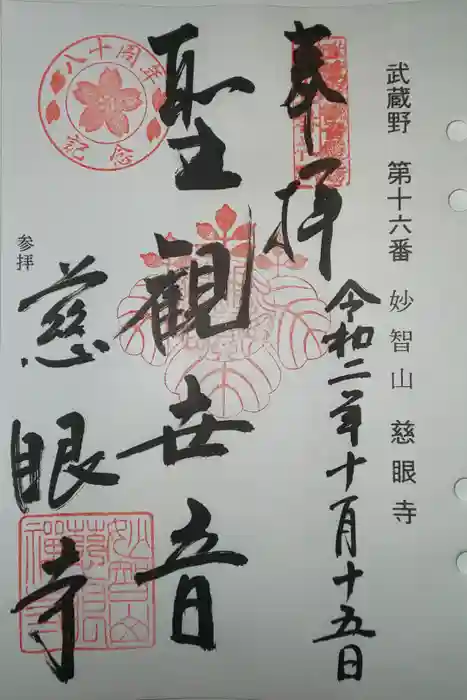 武蔵野 第十六番 妙智山 慈眼寺
奉拝
令和二年十月十五日
聖観世音
八十周年
記念
参拝
慈眼寺